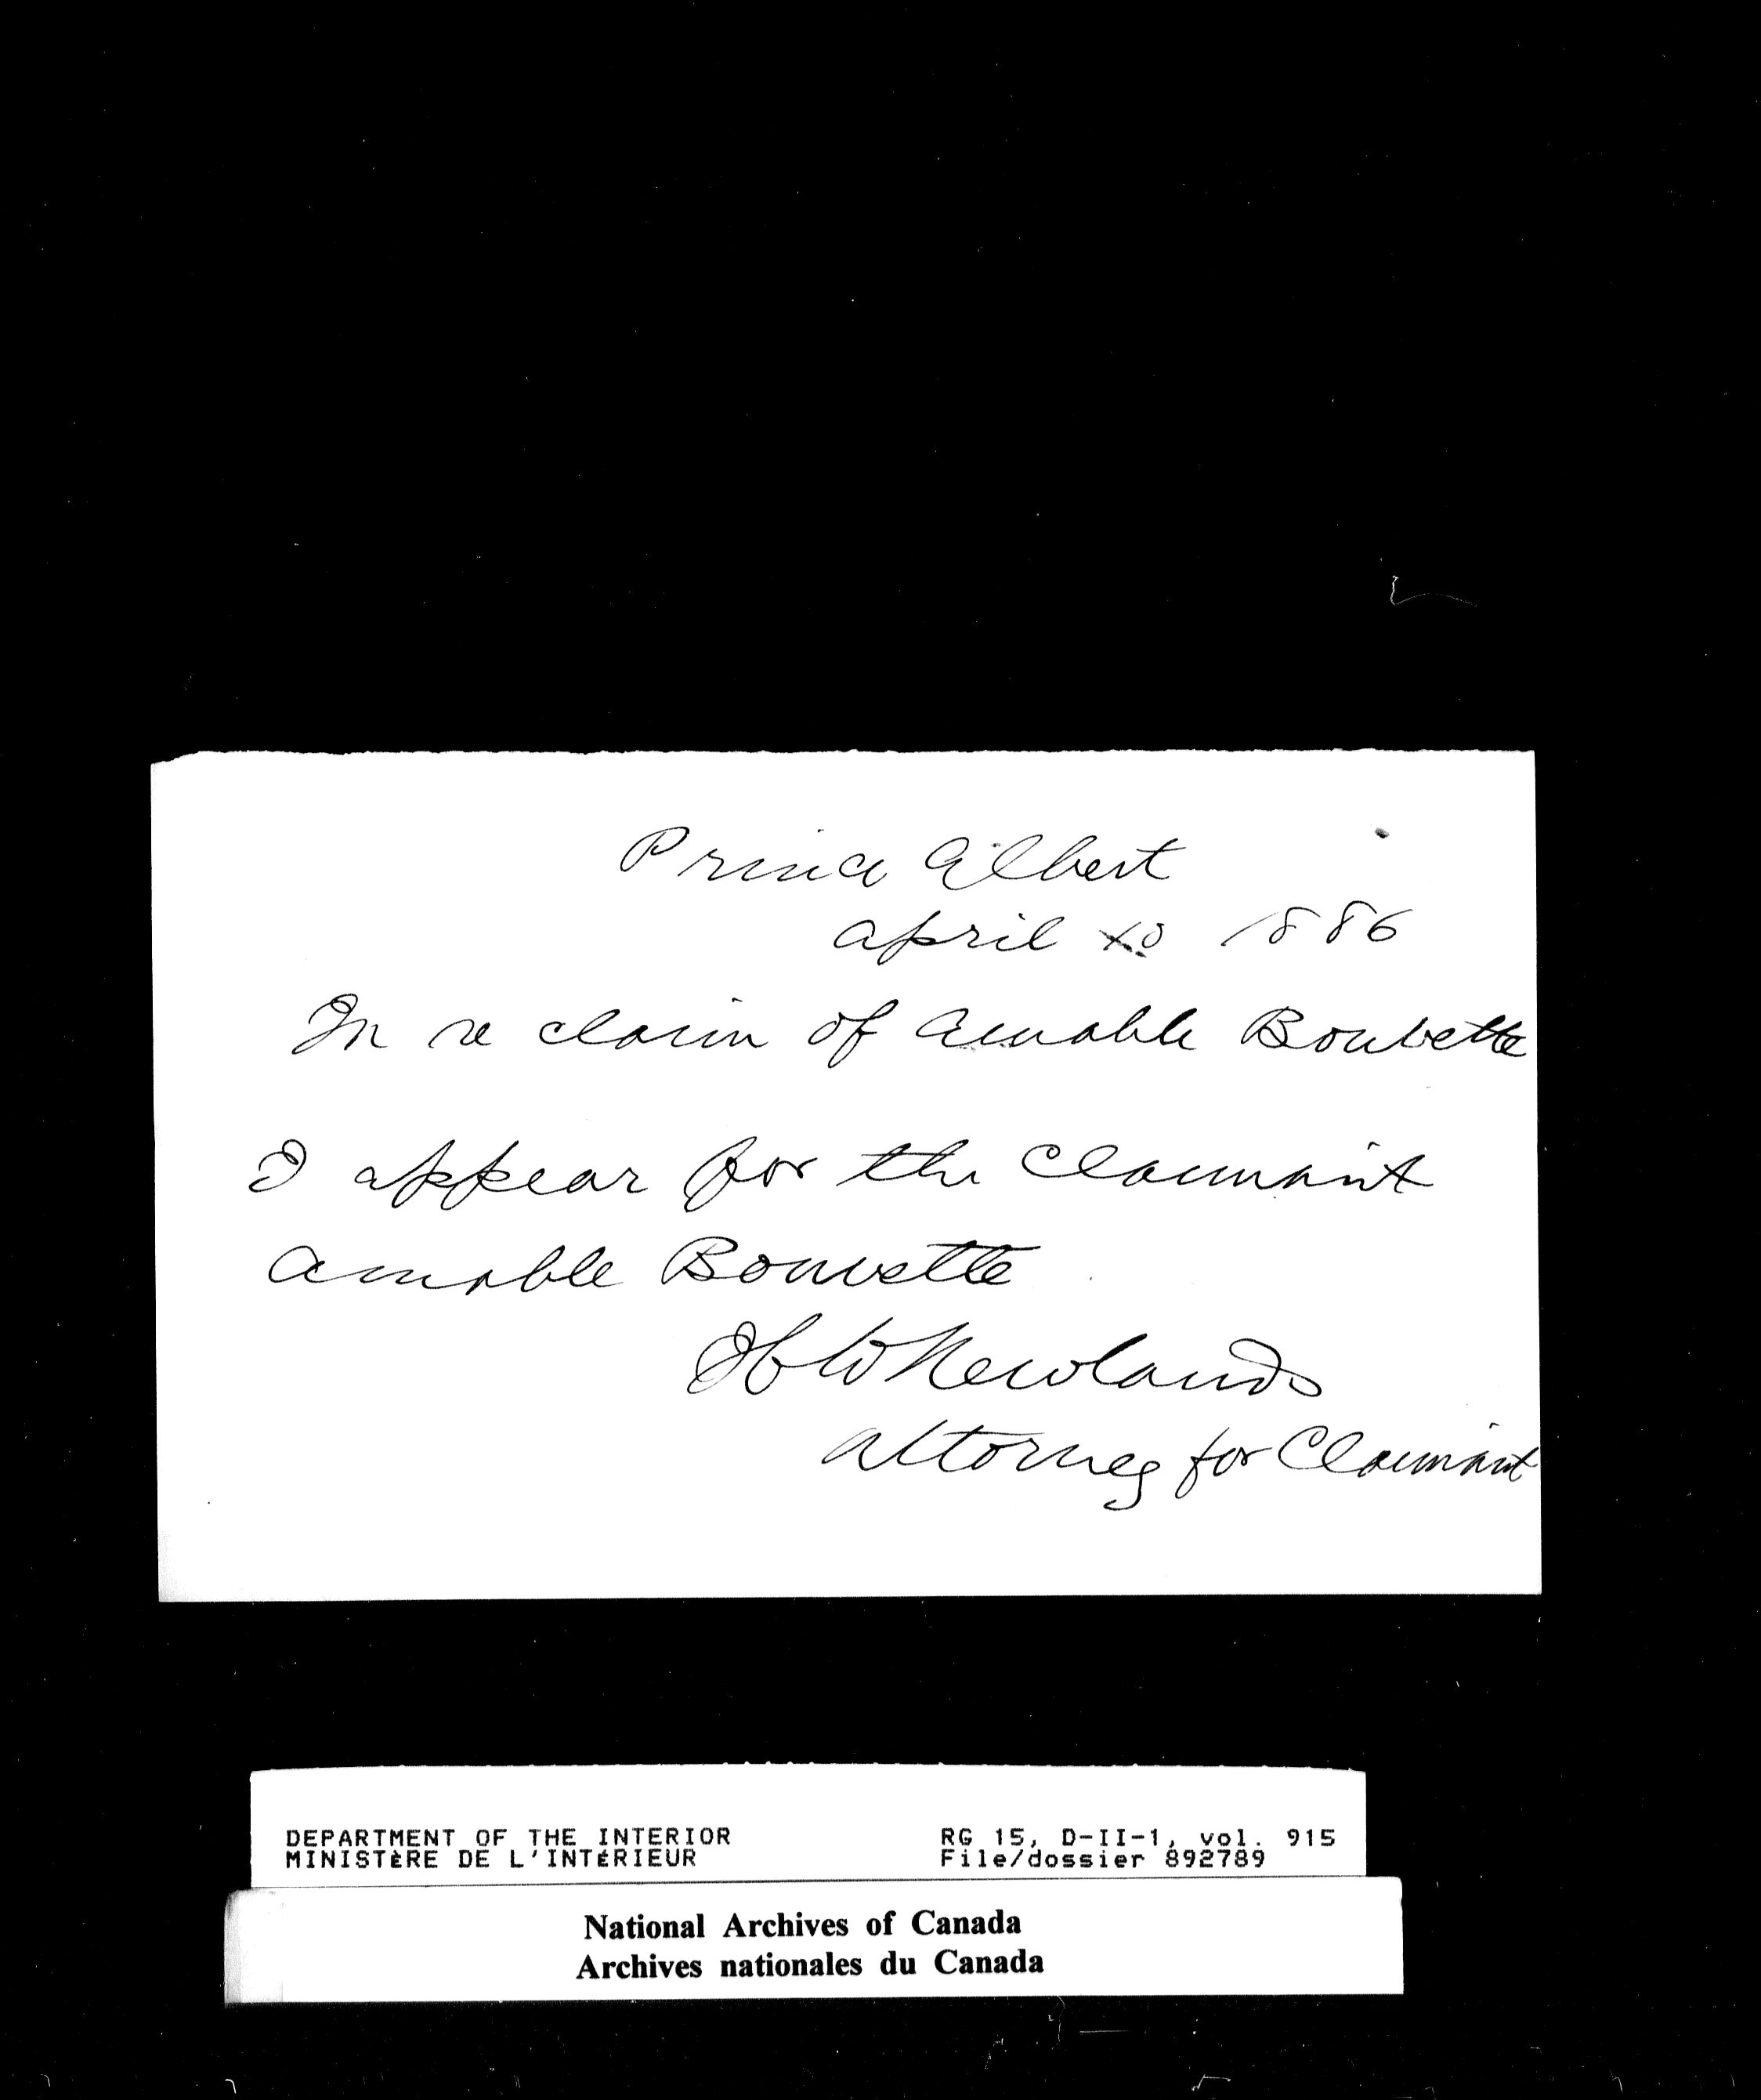 Prince Albert
April 1886
In re claim of Amable Bouvette
I appear for the Claimant
Amable Bouvette
H W Newlands
Attorney for Claimant
DEPARTMENT OF THE INTERIOR RG 15, D-II-1, vol. 915
MINISTÈRE DE L'INTÉRIEUR File/dossier 892789
National Archives of Canada
Archives nationales du Canada